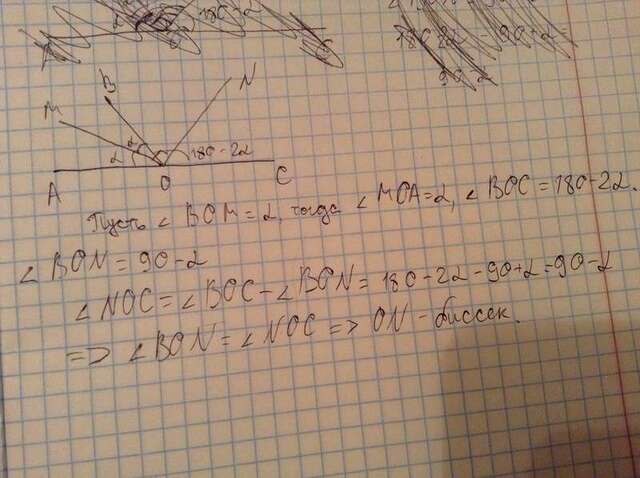 B
N
M
α
α
180-2α
A
O
C
Пусть ∠ BOM = α, тогда ∠ MOA = α, ∠ BOC = 180-2α.
∠ BON = 90-α
∠ NOC = ∠ BOC - ∠ BON = 180-2α-90+α = 90-α
=> ∠ BON = ∠ NOC => ON - биссек.